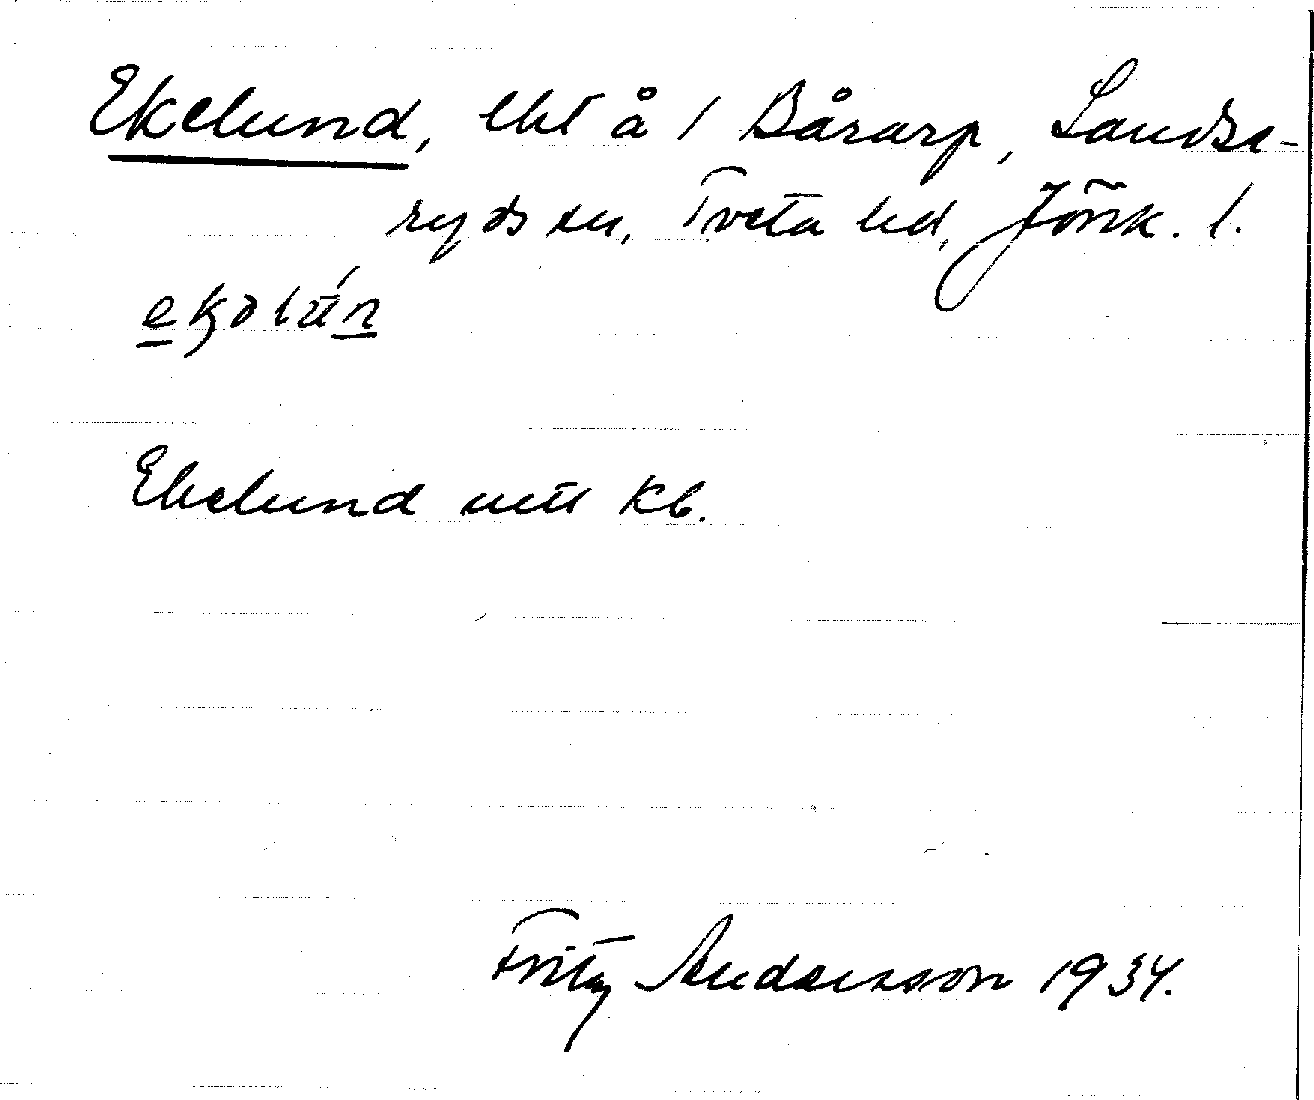 Ekelund, lht å 1 Bårarp, Landse-
ryds sn, Tveta hd, Jönk. l.
Ekelund ett kb.
Fritz Andersson 1934.